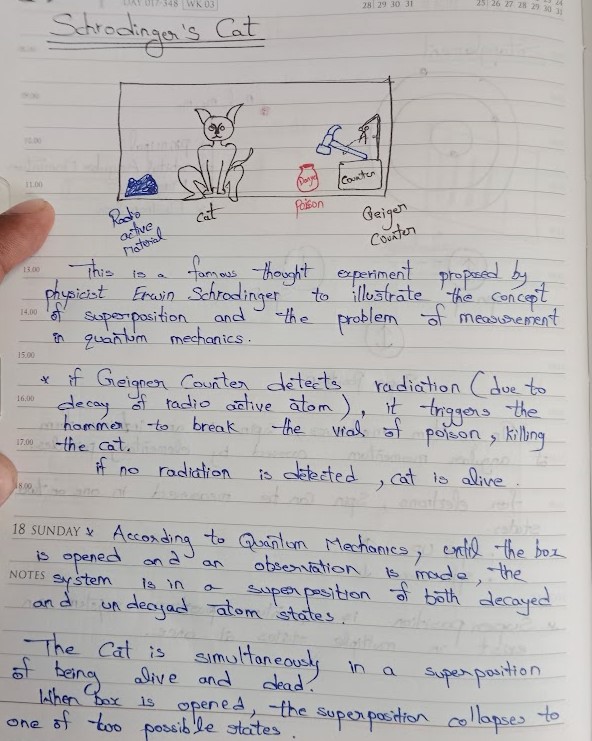 DAY 017-348 WK 03
28 29 30 31
25 26 27 28 29 30 31
Schrodinger's Cat
10.00
11.00
Danger
Counter
Radio
active
material
cat
Poison
Geiger
Counter
13.00
This is a famous thought experiment proposed by
physicist Erwin Schrodinger to illustrate the concept
14.00
of superposition and the problem of measurement
in quantum mechanics.
15.00
* if Geigner Counter detects radiation (due to
16.00
decay of radio active atom), it triggers the
hammer to break the vial of poison, killing
17.00
the cat.
if no radiation is detected, cat is alive.
18.00
18 SUNDAY * According to Quantum Mechanics, until the box
is opened and an observation is made, the
NOTES system is in a superposition of both decayed
and undecyad atom states.
The Cat is simultaneously in a superposition
of being alive and dead.
When box is opened, the superposition collapses to
one of too possible states.